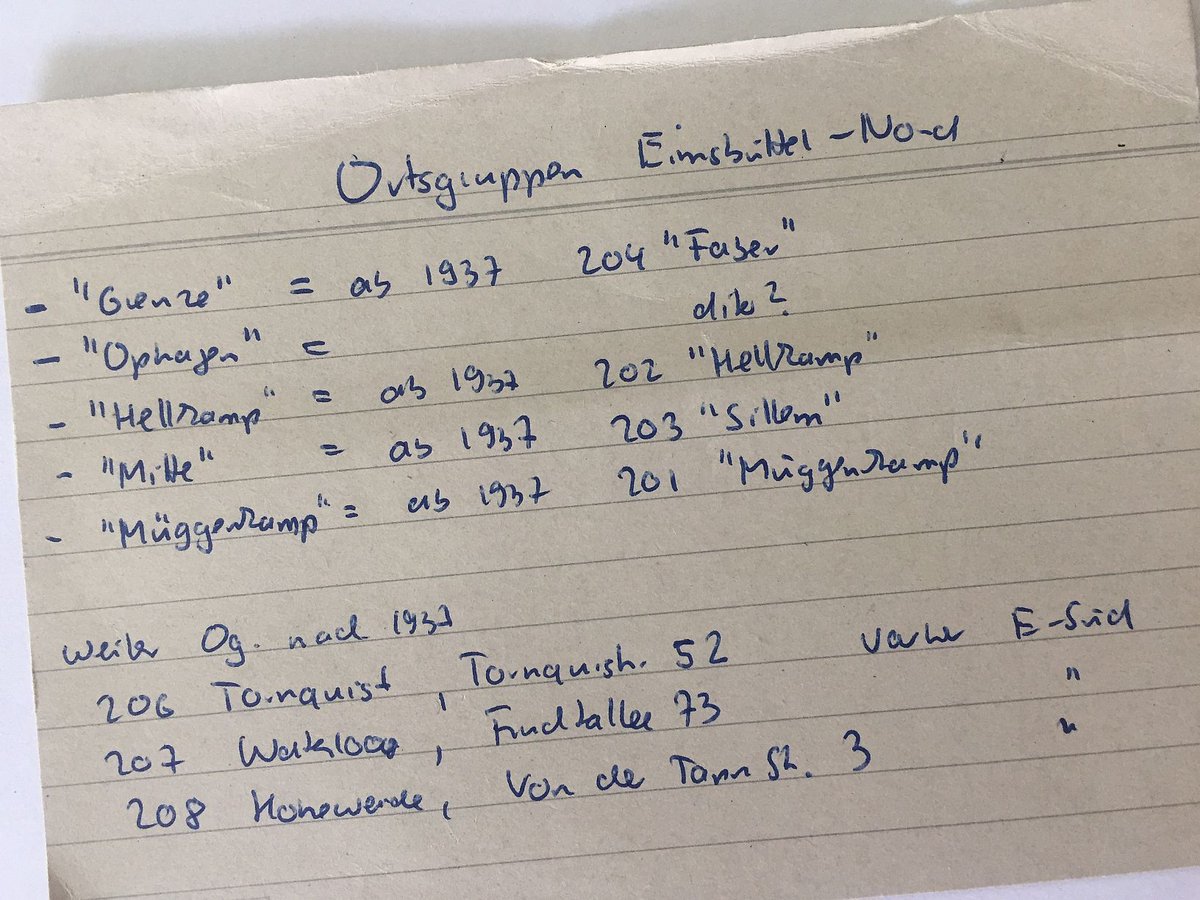 Ortsgruppen Eimsbüttel-Nord
- "Grenze" = ab 1937 204 "Faber"
- "Ophagen" = dito?
- "Hellkamp" = ab 1937 202 "Hellkamp"
- "Mitte" = ab 1937 203 "Sillem"
- "Müggenkamp" = ab 1937 201 "Müggenkamp"
weiter Og. nach 1937
206 Tornquist, Tornquistr. 52 vorher E-Süd
207 Waterloo, Fruchtallee 73 "
208 Hoheweide, Von der Tann Str. 3 "